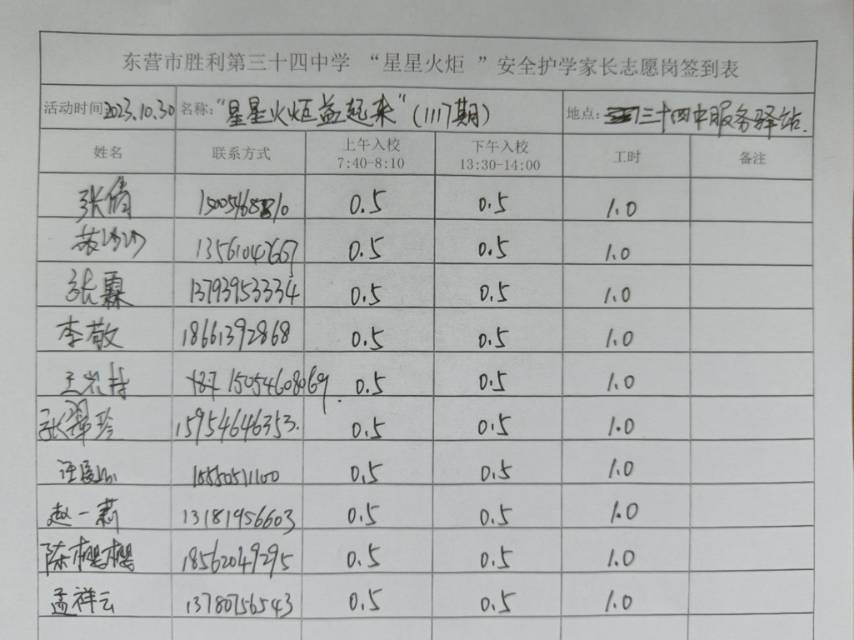 东营市胜利第三十四中学 “星星火炬 ”安全护学家长志愿岗签到表
活动时间2023.10.30 名称:“星星火炬益起来”(1117期) 地点: 三十四中服务驿站.
姓名 联系方式 上午入校 下午入校 工时 备注
7:40-8:10 13:30-14:00
张倩 0.5 0.5 1.0
0.5 0.5 1.0
张霖 13793953334 0.5 0.5 1.0
李敬 18661392868 0.5 0.5 1.0
15054608069. 0.5 0.5 1.0
张翠珍 15954646353. 0.5 0.5 1.0
0.5 0.5 1.0
赵一莉 13181956603 0.5 0.5 1.0
陈樱樱 18562049295 0.5 0.5 1.0
孟祥云 13780756543 0.5 0.5 1.0